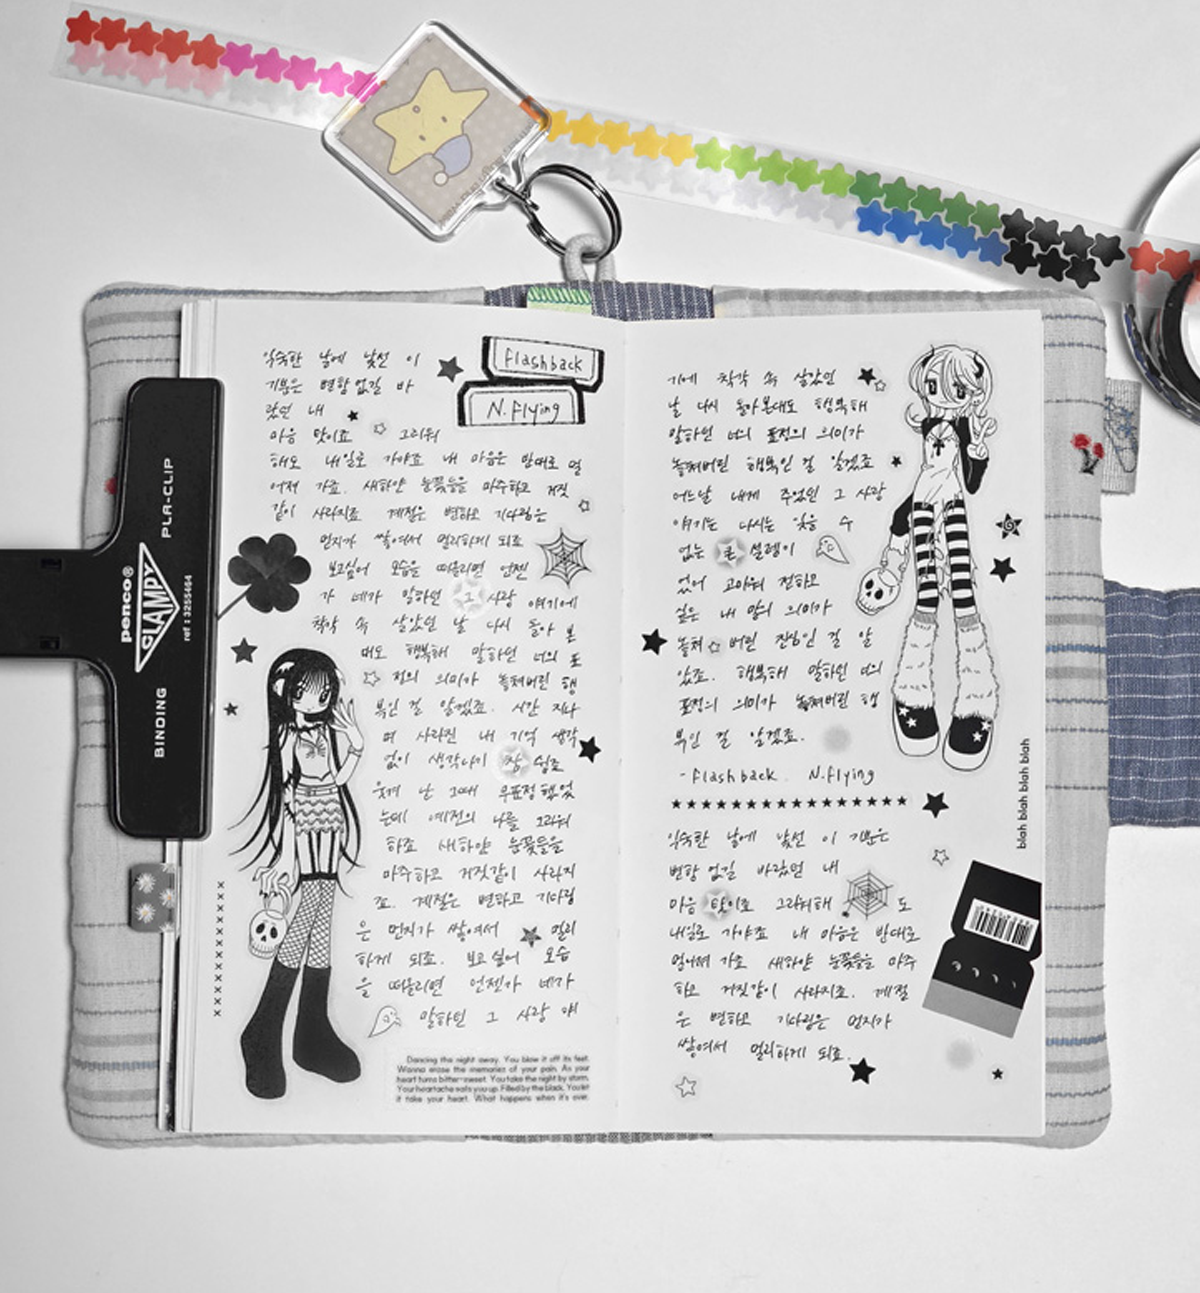 flashback
N.Flying
익숙한 날에 낯선 이
기분은 변함없길 바
랬던 내
마음 탓이죠 그리워
해도 내일로 가야죠 내 마음은 반대로 멀
어져 가죠. 새하얀 눈꽃들을 마주하고 거짓
같이 사라지죠 계절은 변하고 기다림은
먼지가 쌓여서 멀리하게 되죠
보고싶어 모습을 떠올리면 언젠
가 네가 말하던 그 사랑 얘기에
착각 속 살았던 날 다시 돌아 본
대도 행복해 말하던 너의 표
정의 의미가 놓쳐버린 행
복인 걸 알겠죠. 시간 지나
며 사라진 내 기억 생각
없이 생각나이 참 쉽죠
웃겨 난 그때 무표정했었
는데 예전의 나를 그리워
하죠 새하얀 눈꽃들을
마주하고 거짓같이 사라지
죠. 계절은 변하고 기다림
은 먼지가 쌓여서 멀리
하게 되죠. 보고싶어 모습
을 떠올리면 언젠가 네가
말하던 그 사랑 얘
Dancing the night away. You blew it off its feet.
Wanna erase the memories of your pain. As your
heart turns bitter-sweet. You take the night by storm.
Your heartache eats you up. Filled by the black. You let
it take your heart. What happens when it's over.
기에 착각 속 살았던
날 다시 돌아본대도 행복해
말하던 너의 표정의 의미가
놓쳐버린 행복인 걸 알겠죠
어느날 내게 주었던 그 사랑
얘기는 다시는 잊을 수
없는 큰 설렘이
었어 고마워 전하고
싶은 내 말의 의미가
놓쳐 버린 진심인 걸 알
았죠. 행복해 말하던 너의
표정의 의미가 놓쳐버린 행
복인 걸 알겠죠.
- flashback. N.flying
익숙한 날에 낯선 이 기분은
변함 없길 바랬던 내
마음 탓이죠 그리워해 도
내일로 가야죠 내 마음은 반대로
멀어져 가죠 새하얀 눈꽃들을 마주
하고 거짓같이 사라지죠. 계절
은 변하고 기다림은 먼지가
쌓여서 멀리하게 되죠.
blah blah blah blah
penco®
CLAMPY
ref : 3255464
BINDING
PLA-CLIP